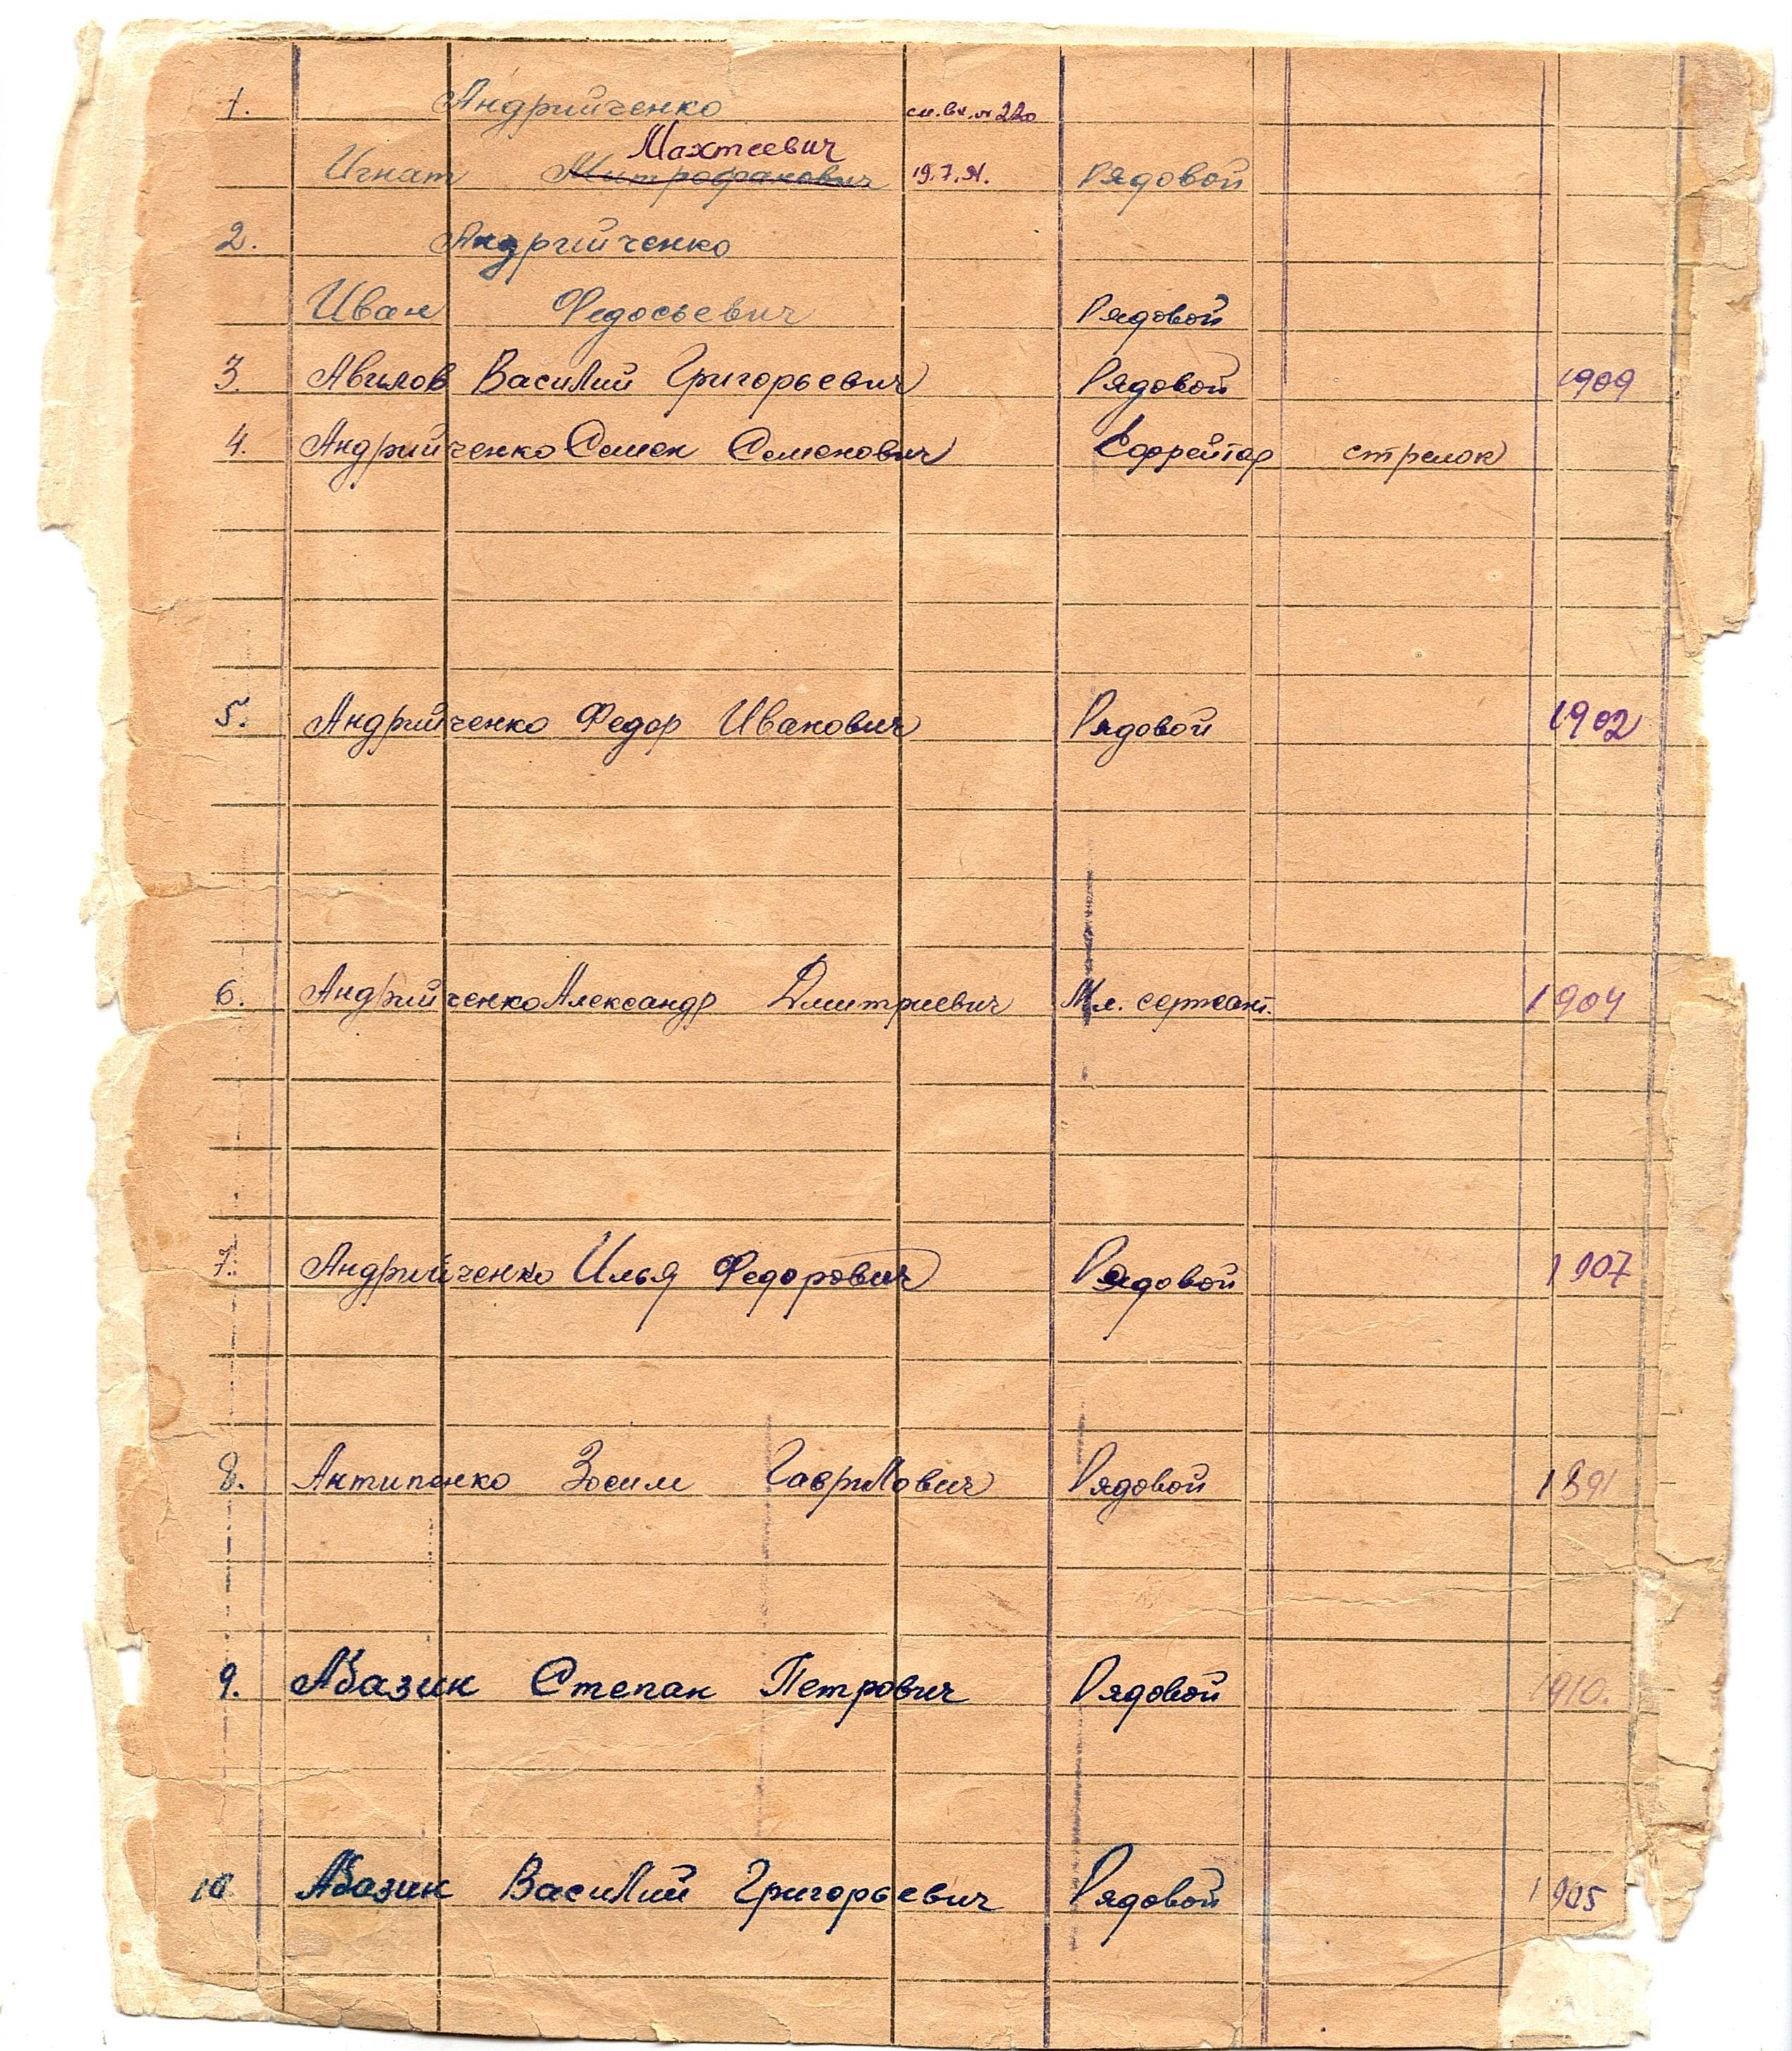 1. Андрийченко см. вх. № 220
Махтеевич
Игнат Митрофанович 19.7. Рядовой
2. Андрийченко
Иван Федосьевич Рядовой
3. Авилов Василий Григорьевич Рядовой 1909
4. Андрийченко Семен Семенович Ефрейтор стрелок
5. Андрийченко Федор Иванович Рядовой 1902
6. Андрийченко Александр Дмитриевич Мл. сержант. 1904
7. Андрийченко Илья Федорович Рядовой 1907
8. Антипенко Зосим Гаврилович Рядовой 1891
9. Абазин Степан Петрович Рядовой 1910.
10 Абазин Василий Григорьевич Рядовой 1905